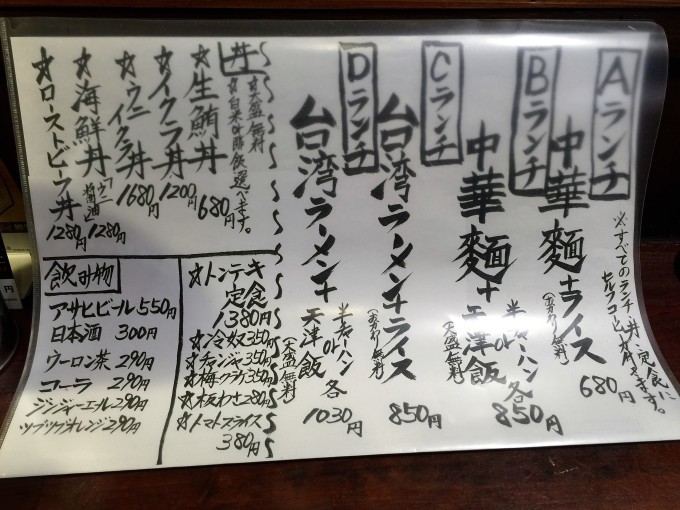 Aランチ
中華麺+ライス
(おかわり無料)
680円
※すべてのランチ、丼、定食に
セルフコーヒー付きます。
Bランチ
中華麺+天津飯
半チャーハン
or
各
(大盛無料)
850円
Cランチ
台湾ラーメン+ライス
(おかわり無料)
850円
Dランチ
台湾ラーメン+天津飯
半チャーハン
or
各
(大盛無料)
1030円
丼
☆大盛無料
☆白米or酢飯選べます。
☆生鮪丼 680円
☆イクラ丼 1200円
☆ウニイクラ丼 1680円
☆海鮮丼「ウニ醤油」1280円
☆ローストビーフ丼 1280円
☆トンテキ
定食
1380円
☆冷奴350円
☆チャンジャ350円
☆梅クラゲ350円
☆板わさ280円
☆トマトスライス
380円
飲み物
アサヒビール550円
日本酒 300円
ウーロン茶 290円
コーラ 290円
ジンジャーエール290円
ツブツブオレンジ290円
円